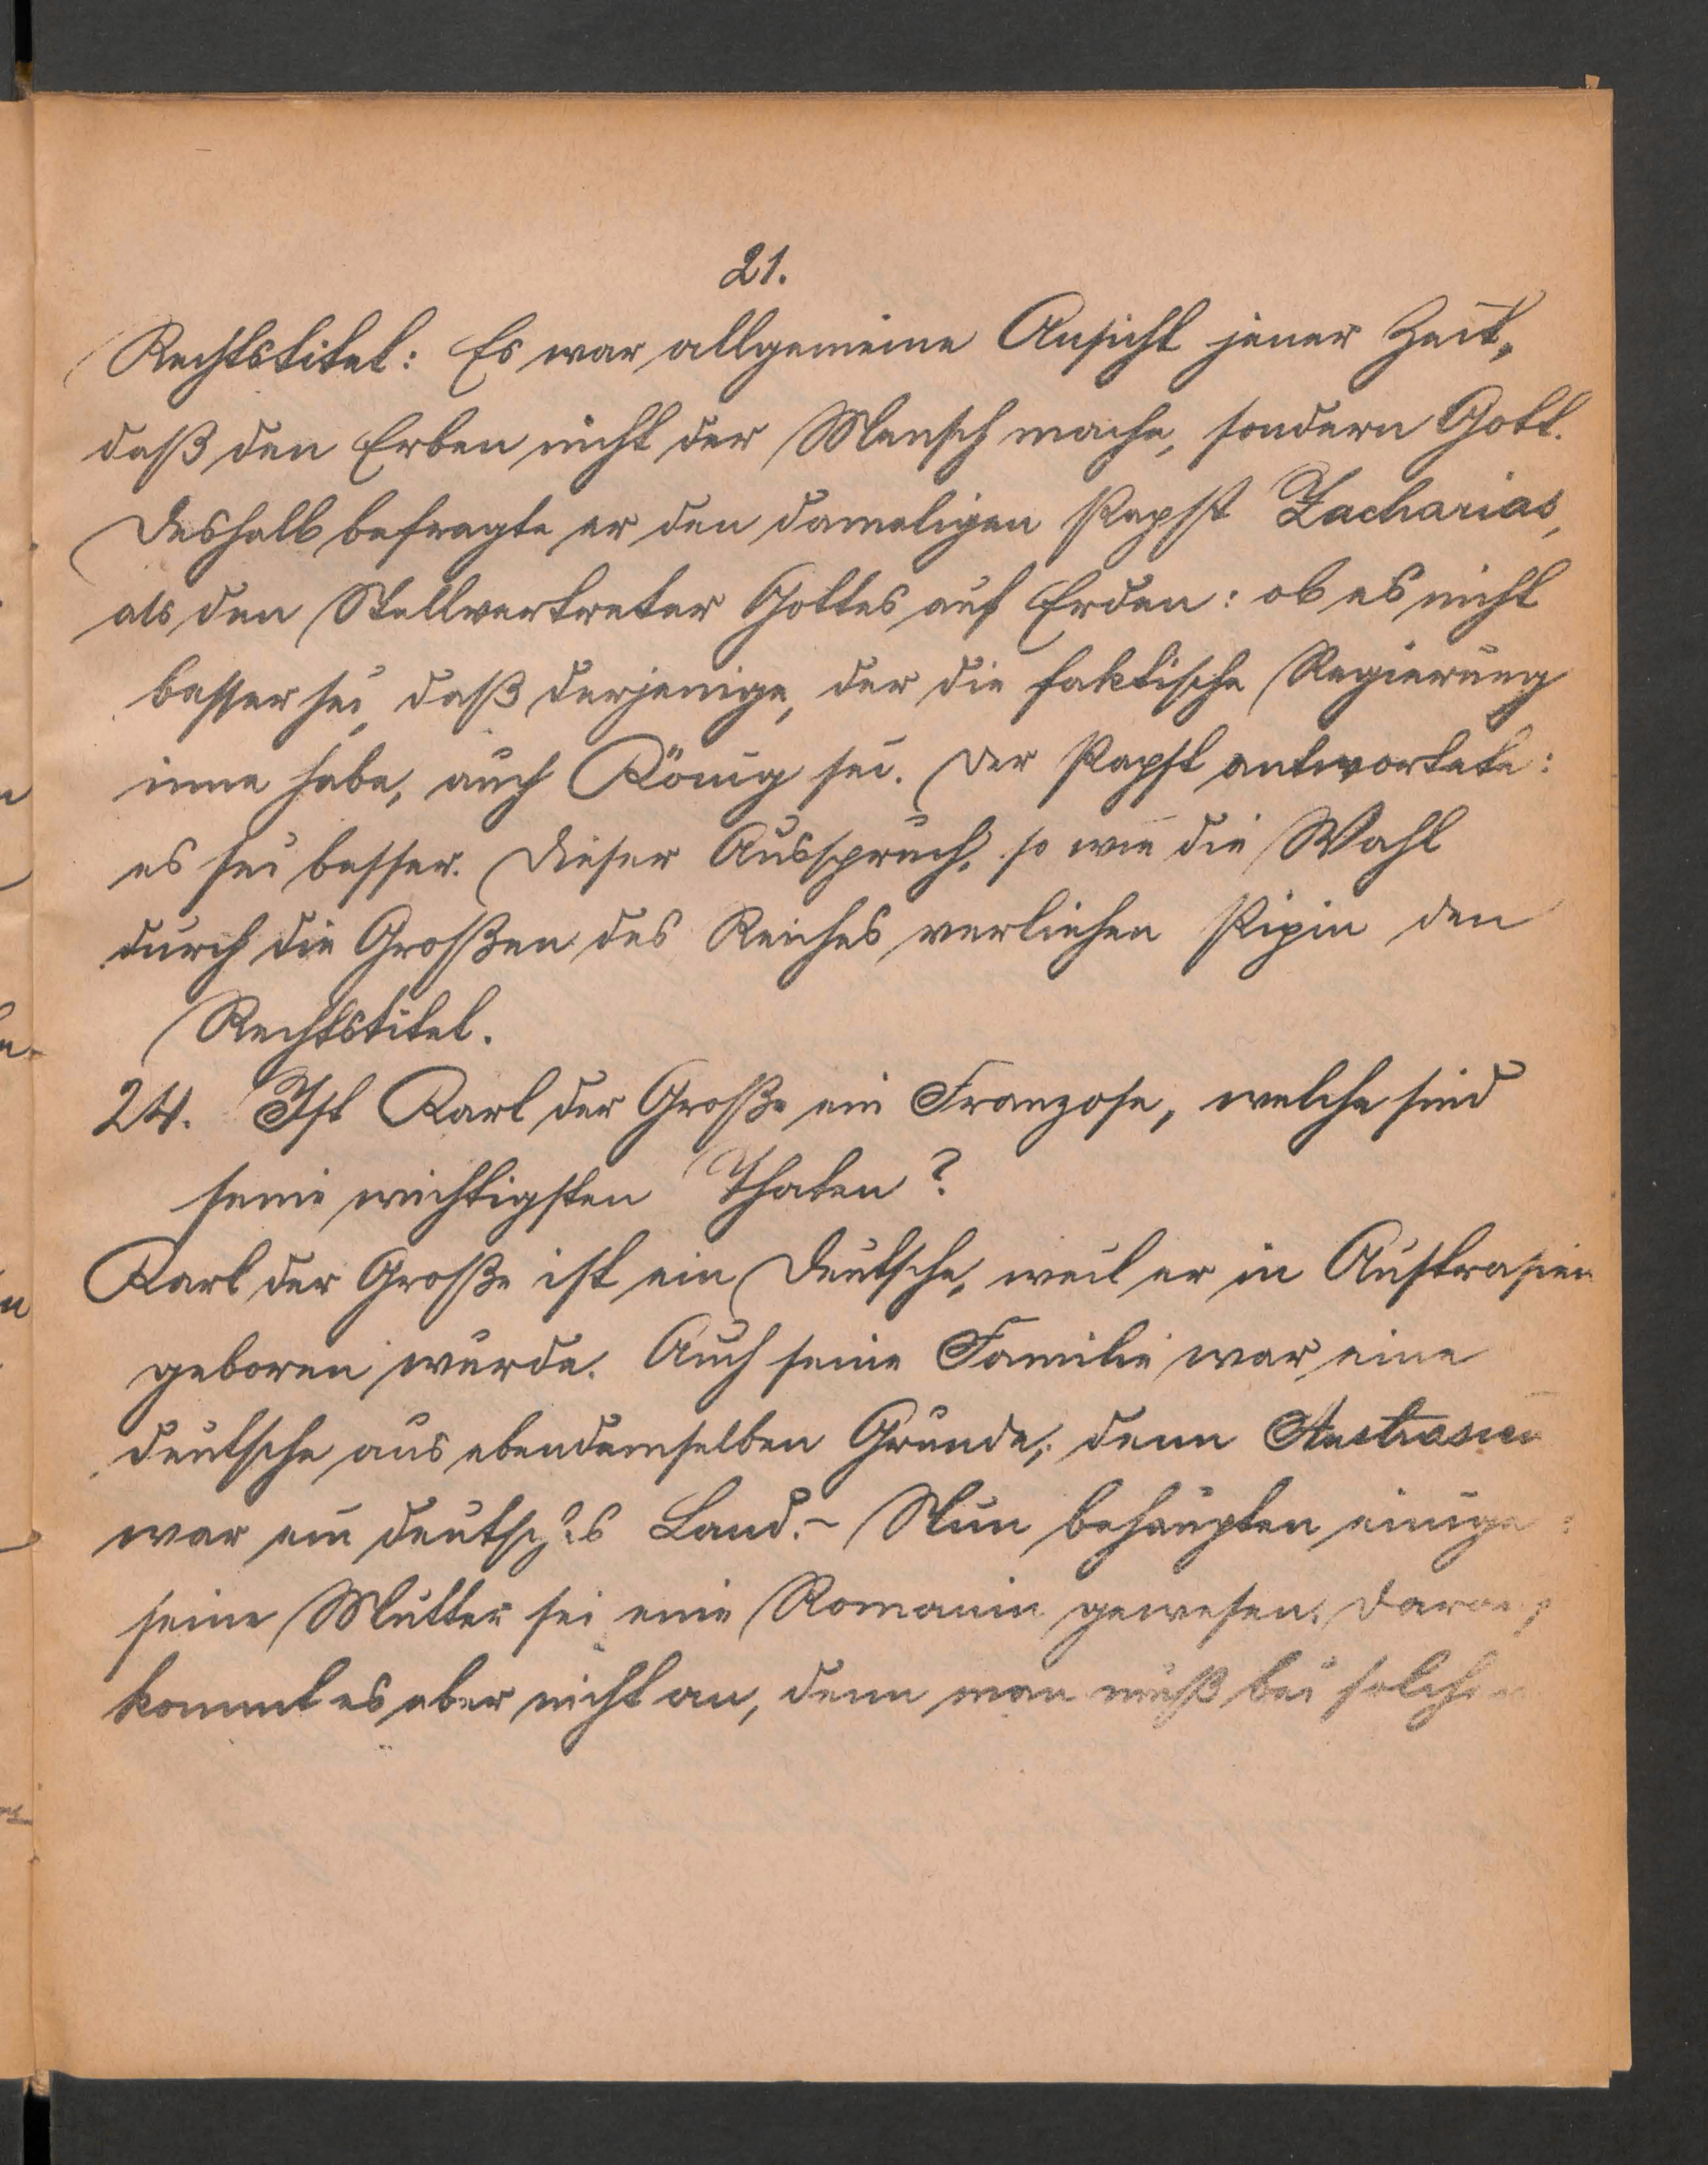 21.
Rechtstitel: Es war allgemeine Ansicht jener Zeit,
daß den Erben nicht der Mensch mache, sondern Gott.
Deshalb befragte er den damaligen Papst Zacharias,
als den Stellvertreter Gottes auf Erden: ob es nicht
besser sei, daß derjenige, der die faktische Regierung
inne habe, auch König sei. Der Papst antwortete:
es sei besser. Dieser Ausspruch, so wie die Wahl
durch die Großen des Reiches verliehen Pipin den
Rechtstitel.
24. Ist Karl der Große ein Franzose, welche sind
seine wichtigsten Thaten?
Karl der Große ist ein Deutscher, weil er in Austrasien
geboren wurde. Auch seine Familie war eine
deutsche aus ebendemselben Grunde, denn Austrasien
war ein deutsches Land. - Nun behaupten einige:
seine Mutter sei eine Romanin gewesen. Darauf
kommt es aber nicht an, denn man muß bei solchen